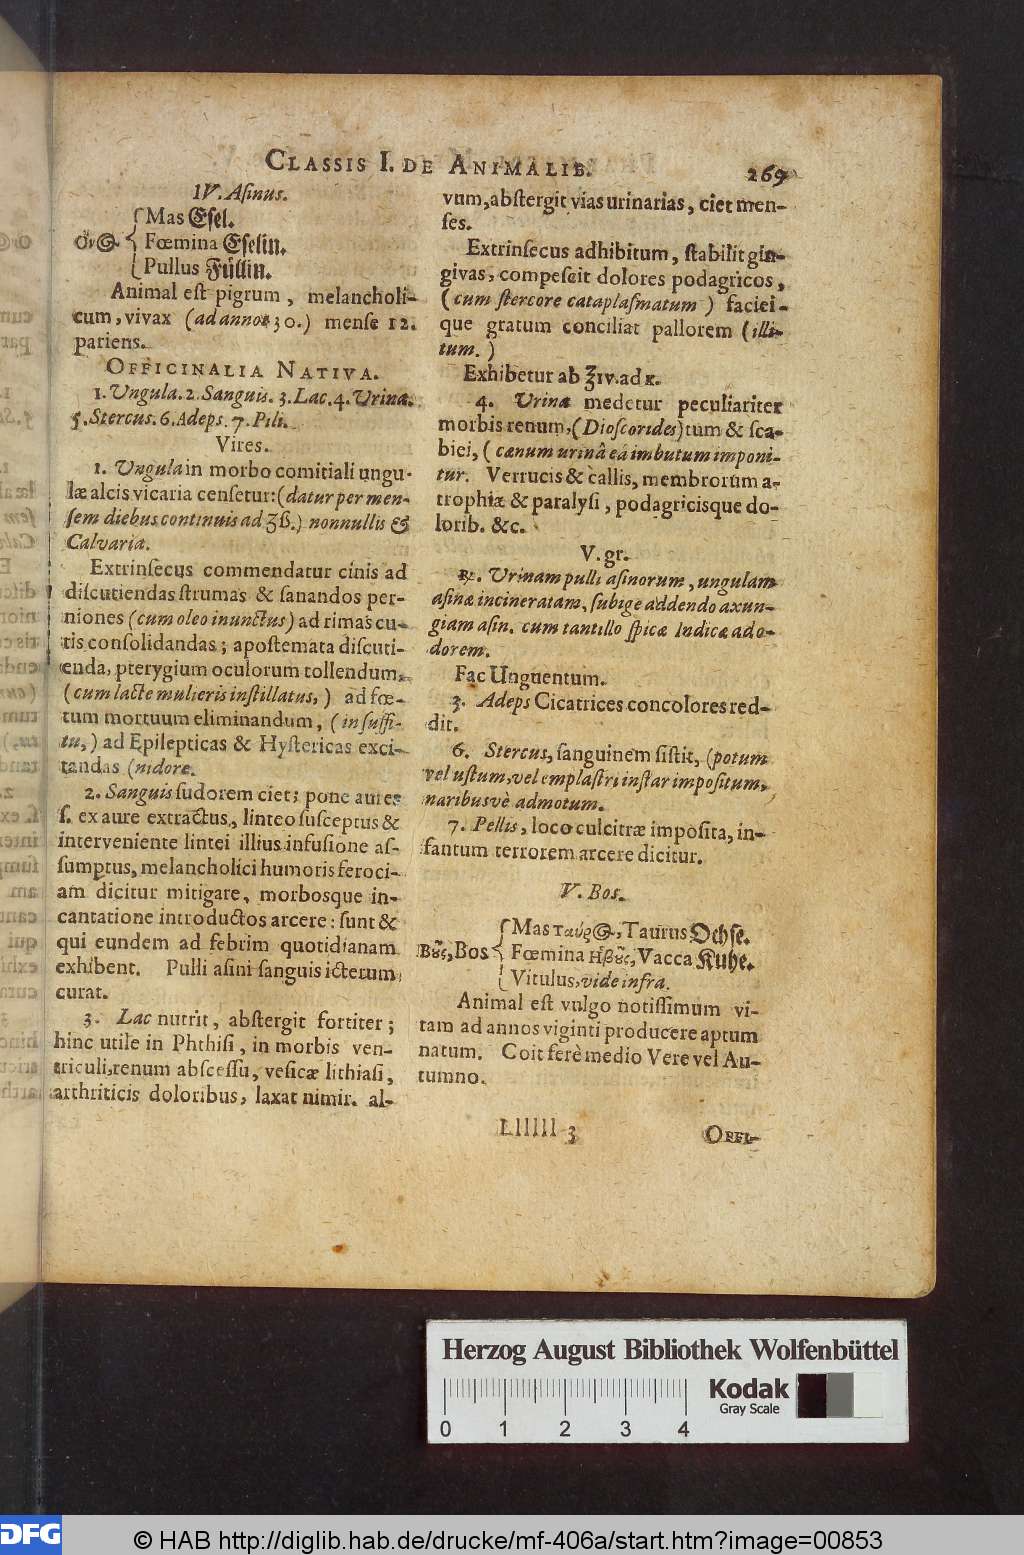 CLASSIS I. DE ANIMALIB. 269
IV. Asinus.
Mas Esel.
Fœmina Eselin.
Pullus Füllin.
Animal est pigrum, melancholi-
cum, vivax (ad annos 30.) mense 12.
pariens.
OFFICINALIA NATIVA.
1. Ungula. 2. Sanguis. 3. Lac. 4. Urina.
5. Stercus. 6. Adeps. 7. Pili.
Vires.
1. Ungula in morbo comitiali ungu-
læ alcis vicaria censetur: (datur per men-
sem diebus continuis ad ʒß.) nonnullis &
Calvaria.
Extrinsecus commendatur cinis ad
discutiendas strumas & sanandos per-
niones (cum oleo inunctus) ad rimas cu-
tis consolidandas; apostemata discuti-
enda, pterygium oculorum tollendum,
(cum lacte mulieris instillatus,) ad fœ-
tum mortuum eliminandum, (in suffi-
tu,) ad Epilepticas & Hystericas exci-
tandas (nidore.
2. Sanguis sudorem ciet; pone aures
s. ex aure extractus, linteo susceptus &
interveniente lintei illius infusione as-
sumptus, melancholici humoris feroci-
am dicitur mitigare, morbosque in-
cantatione introductos arcere: sunt &
qui eundem ad febrim quotidianam
exhibent. Pulli asini sanguis icterum
curat.
3. Lac nutrit, abstergit fortiter;
hinc utile in Phthisi, in morbis ven-
triculi, renum abscessu, vesicæ lithiasi,
arthriticis doloribus, laxat nimir. al-
vum, abstergit vias urinarias, ciet men-
ses.
Extrinsecus adhibitum, stabilit gin-
givas, compescit dolores podagricos,
(cum stercore cataplasmatum) faciei-
que gratum conciliat pallorem (illi-
tum.)
Exhibetur ab ℥iv. ad x.
4. Urina medetur peculiariter
morbis renum, (Dioscorides) tum & sca-
biei, (cænum urinâ eâ imbutum imponi-
tur. Verrucis & callis, membrorum a-
trophiæ & paralysi, podagricisque do-
lorib. &c.
V. gr.
℞. Urinam pulli asinorum, ungulam
asinæ incineratam, subige addendo axun-
giam asin. cum tantillo spicæ Indicæ ad o-
dorem.
Fac Unguentum.
3. Adeps Cicatrices concolores red-
dit.
6. Stercus, sanguinem sistit, (potum
vel ustum, vel emplastri instar impositum,
naribusvè admotum.
7. Pellis, loco culcitræ imposita, in-
fantum terrorem arcere dicitur.
V. Bos.
Mas ταύρ⊙, Taurus Ochse.
Βοῦς, Bos Fœmina Ἡ βοῦς, Vacca Kuhe.
Vitulus, vide infra.
Animal est vulgo notissimum vi-
tam ad annos viginti producere aptum
natum. Coit ferè medio Vere vel Au-
tumno.
Llllll 3 OFFI-
Herzog August Bibliothek Wolfenbüttel
Kodak
Gray Scale
0 1 2 3 4
DFG
© HAB http://diglib.hab.de/drucke/mf-406a/start.htm?image=00853